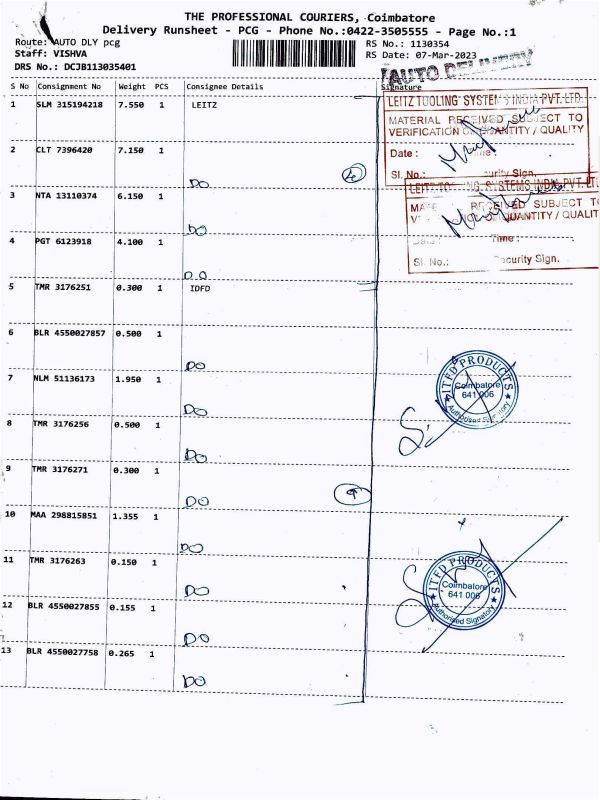 THE PROFESSIONAL COURIERS, Coimbatore
Delivery Runsheet - PCG - Phone No.:0422-3505555 - Page No.:1
Route: AUTO DLY pcg
RS No.: 1130354
Staff: VISHVA
RS Date: 07-Mar-2023
DRS No.: DCJB113035401
AUTO DELIVERY
S No Consignment No Weight PCS Consignee Details Signature
1 SLM 315194218 7.550 1 LEITZ
LEITZ TOOLING SYSTEMS INDIA PVT. LTD.
MATERIAL RECEIVED SUBJECT TO
VERIFICATION OF QUANTITY / QUALITY
Date : Time :
Sl. No.: Security Sign.
2 CLT 7396420 7.150 1
DO
LEITZ TOOLING SYSTEMS INDIA PVT. LTD.
3 NTA 13110374 6.150 1
DO
RECEIVED SUBJECT TO
QUANTITY / QUALIT
Time :
Sl. No.: Security Sign.
4 PGT 6123918 4.100 1
D.O
5 TMR 3176251 0.300 1 IDFD
6 BLR 4550027857 0.500 1
DO
7 NLM 51136173 1.950 1
DO
ITFD PRODUCTS
Coimbatore
641 006
Authorised Signatory
8 TMR 3176256 0.500 1
DO
9 TMR 3176271 0.300 1
DO
10 MAA 298815851 1.355 1
DO
11 TMR 3176263 0.150 1
DO
ITFD PRODUCTS
Coimbatore
641 006
Authorised Signatory
12 BLR 4550027855 0.155 1
DO
13 BLR 4550027758 0.265 1
DO